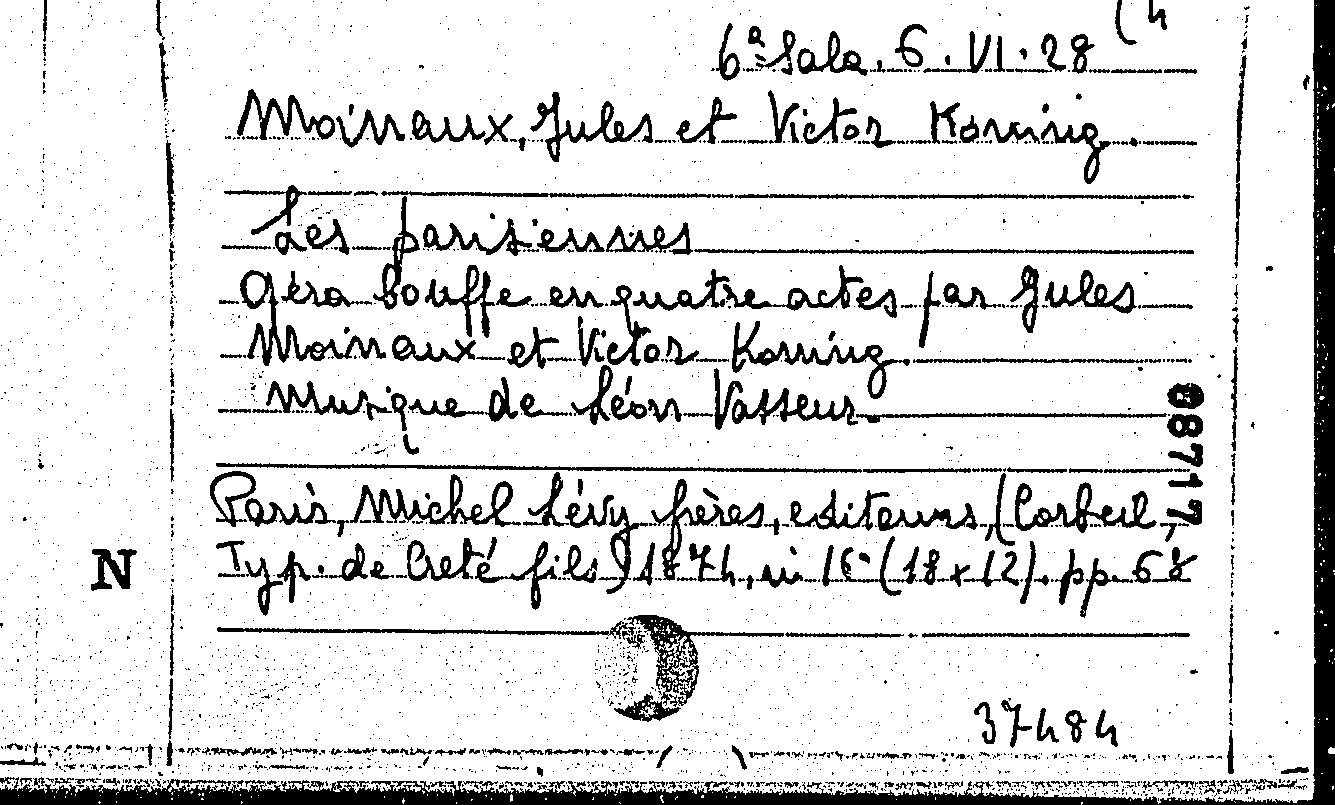 (4
6ª Sala. 6. VI. 28
Moinaux, Jules et Victor Koning.
Les parisiennes
Opéra bouffe en quatre actes par Jules
Moinaux et Victor Koning.
Musique de Léon Vasseur.
08717
Paris, Michel Lévy frères, editeurs, (Corbeil,
N
Typ. de Creté fils) 1874, in 16° (18 x 12). pp. 68
37484